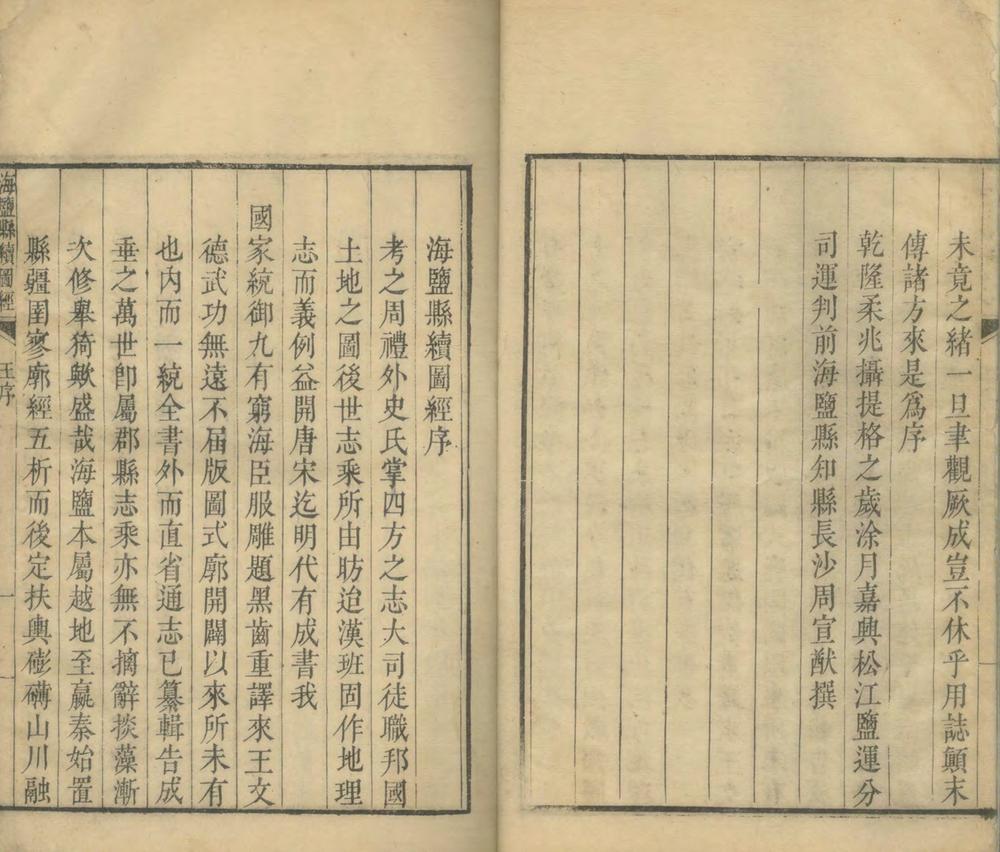 未竟之緒一旦聿觀厥成豈不休乎用誌顛末
傳諸方來是爲序
乾隆柔兆攝提格之歲涂月嘉興松江鹽運分
司運判前海鹽縣知縣長沙周宣猷撰
海鹽縣續圖經序
考之周禮外史氏掌四方之志大司徒職邦國
土地之圖後世志乘所由昉迨漢班固作地理
志而義例益開唐宋迄明代有成書我
國家統御九有窮海臣服雕題黑齒重譯來王文
德武功無遠不届版圖式廓開闢以來所未有
也内而一統全書外而直省通志已纂輯告成
垂之萬世卽屬郡縣志乘亦無不摛辭掞藻漸
次修舉猗歟盛哉海鹽本屬越地至嬴秦始置
縣疆圉寥廓經五析而後定扶輿磅礴山川融
海鹽縣續圖經
王序